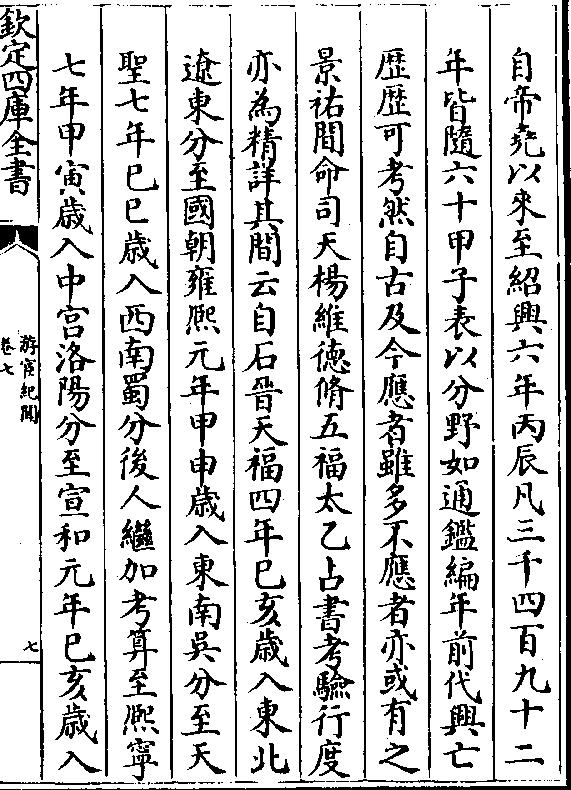 自帝堯以來至紹興六年丙辰凡三千四百九十二
年皆隨六十甲子表以分野如通鑑編年前代興亡
歴歴可考然自古及今應者雖多不應者亦或有之
景祐間命司天楊維徳脩五福太乙占書考驗行度
亦為精詳其間云自石晉天福四年巳亥歲入東北
遼東分至國朝雍熈元年甲申歲入東南吳分至天
聖七年巳巳歲入西南蜀分後人繼加考算至熈寧
七年甲寅歲入中宫洛陽分至宣和元年巳亥歲入
欽定四庫全書
游宦紀聞
卷七
七